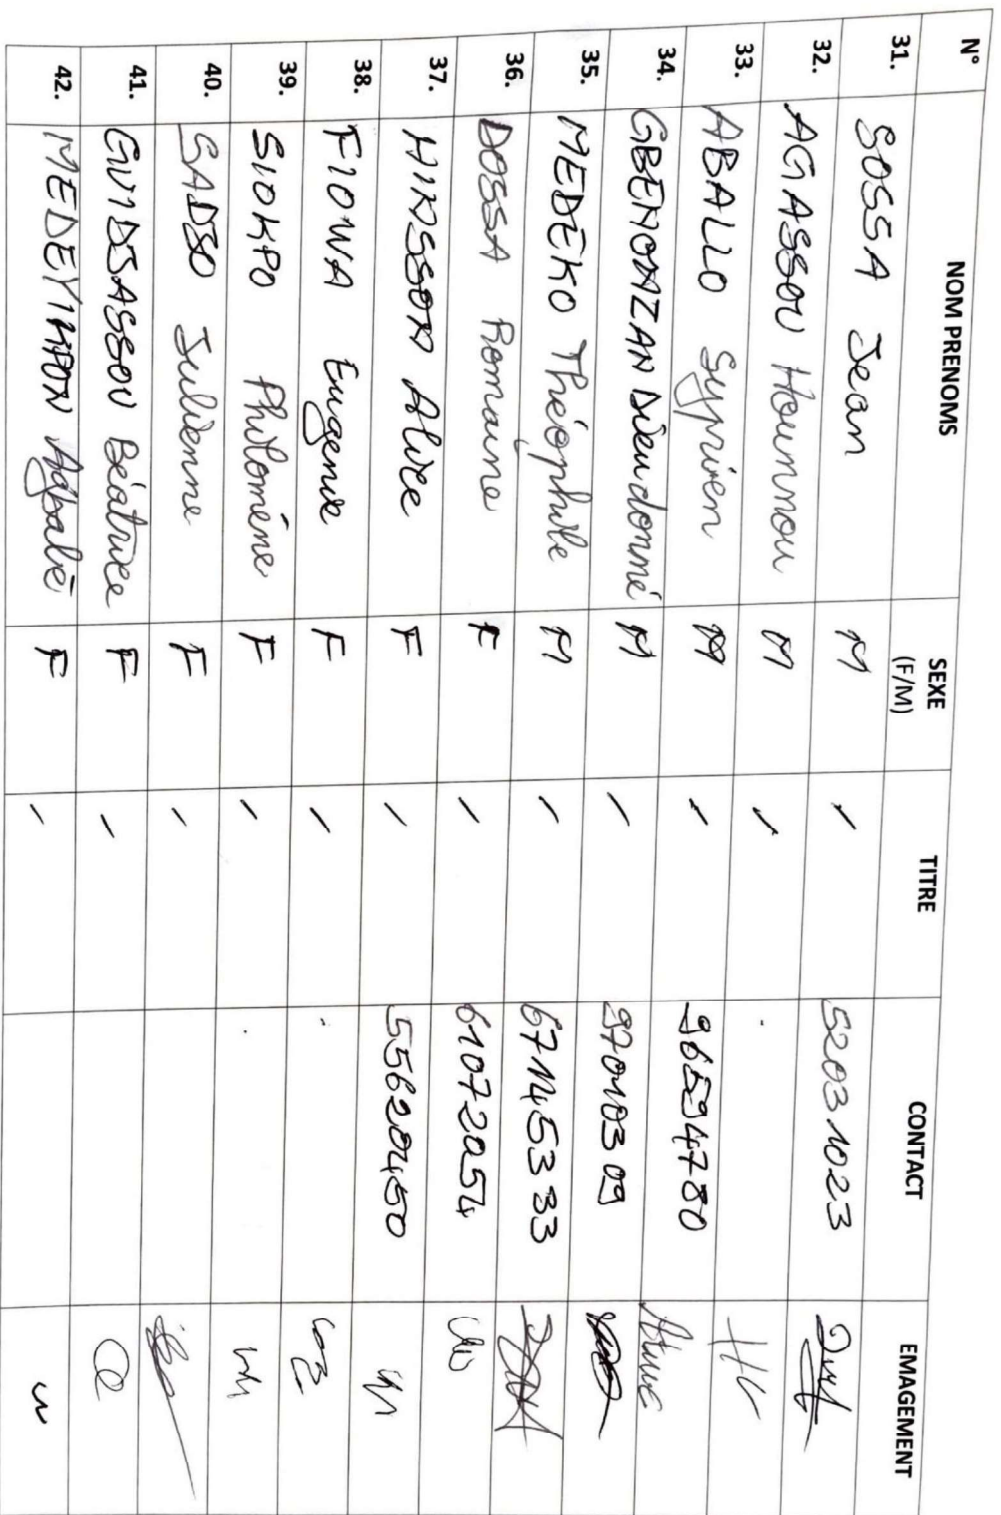 N° NOM PRENOMS SEXE (F/M) TITRE CONTACT EMAGEMENT
31. SOSSA Jean M / 52031023
32. AGASSOU Hounnou M /
33. ABALLO Syprien M / 96594780
34. GBENONZAN Dieudonné M / 97010309
35. MEDEKO Théophile M / 67145333
36. DOSSA Romaine F / 61072054
37. HINSSON Alice F / 55620450
38. FIOWA Eugenie F /
39. SIOKPO Philomène F /
40. Julienne F /
41. GUIDJASSOU Béatrice F /
42. F /